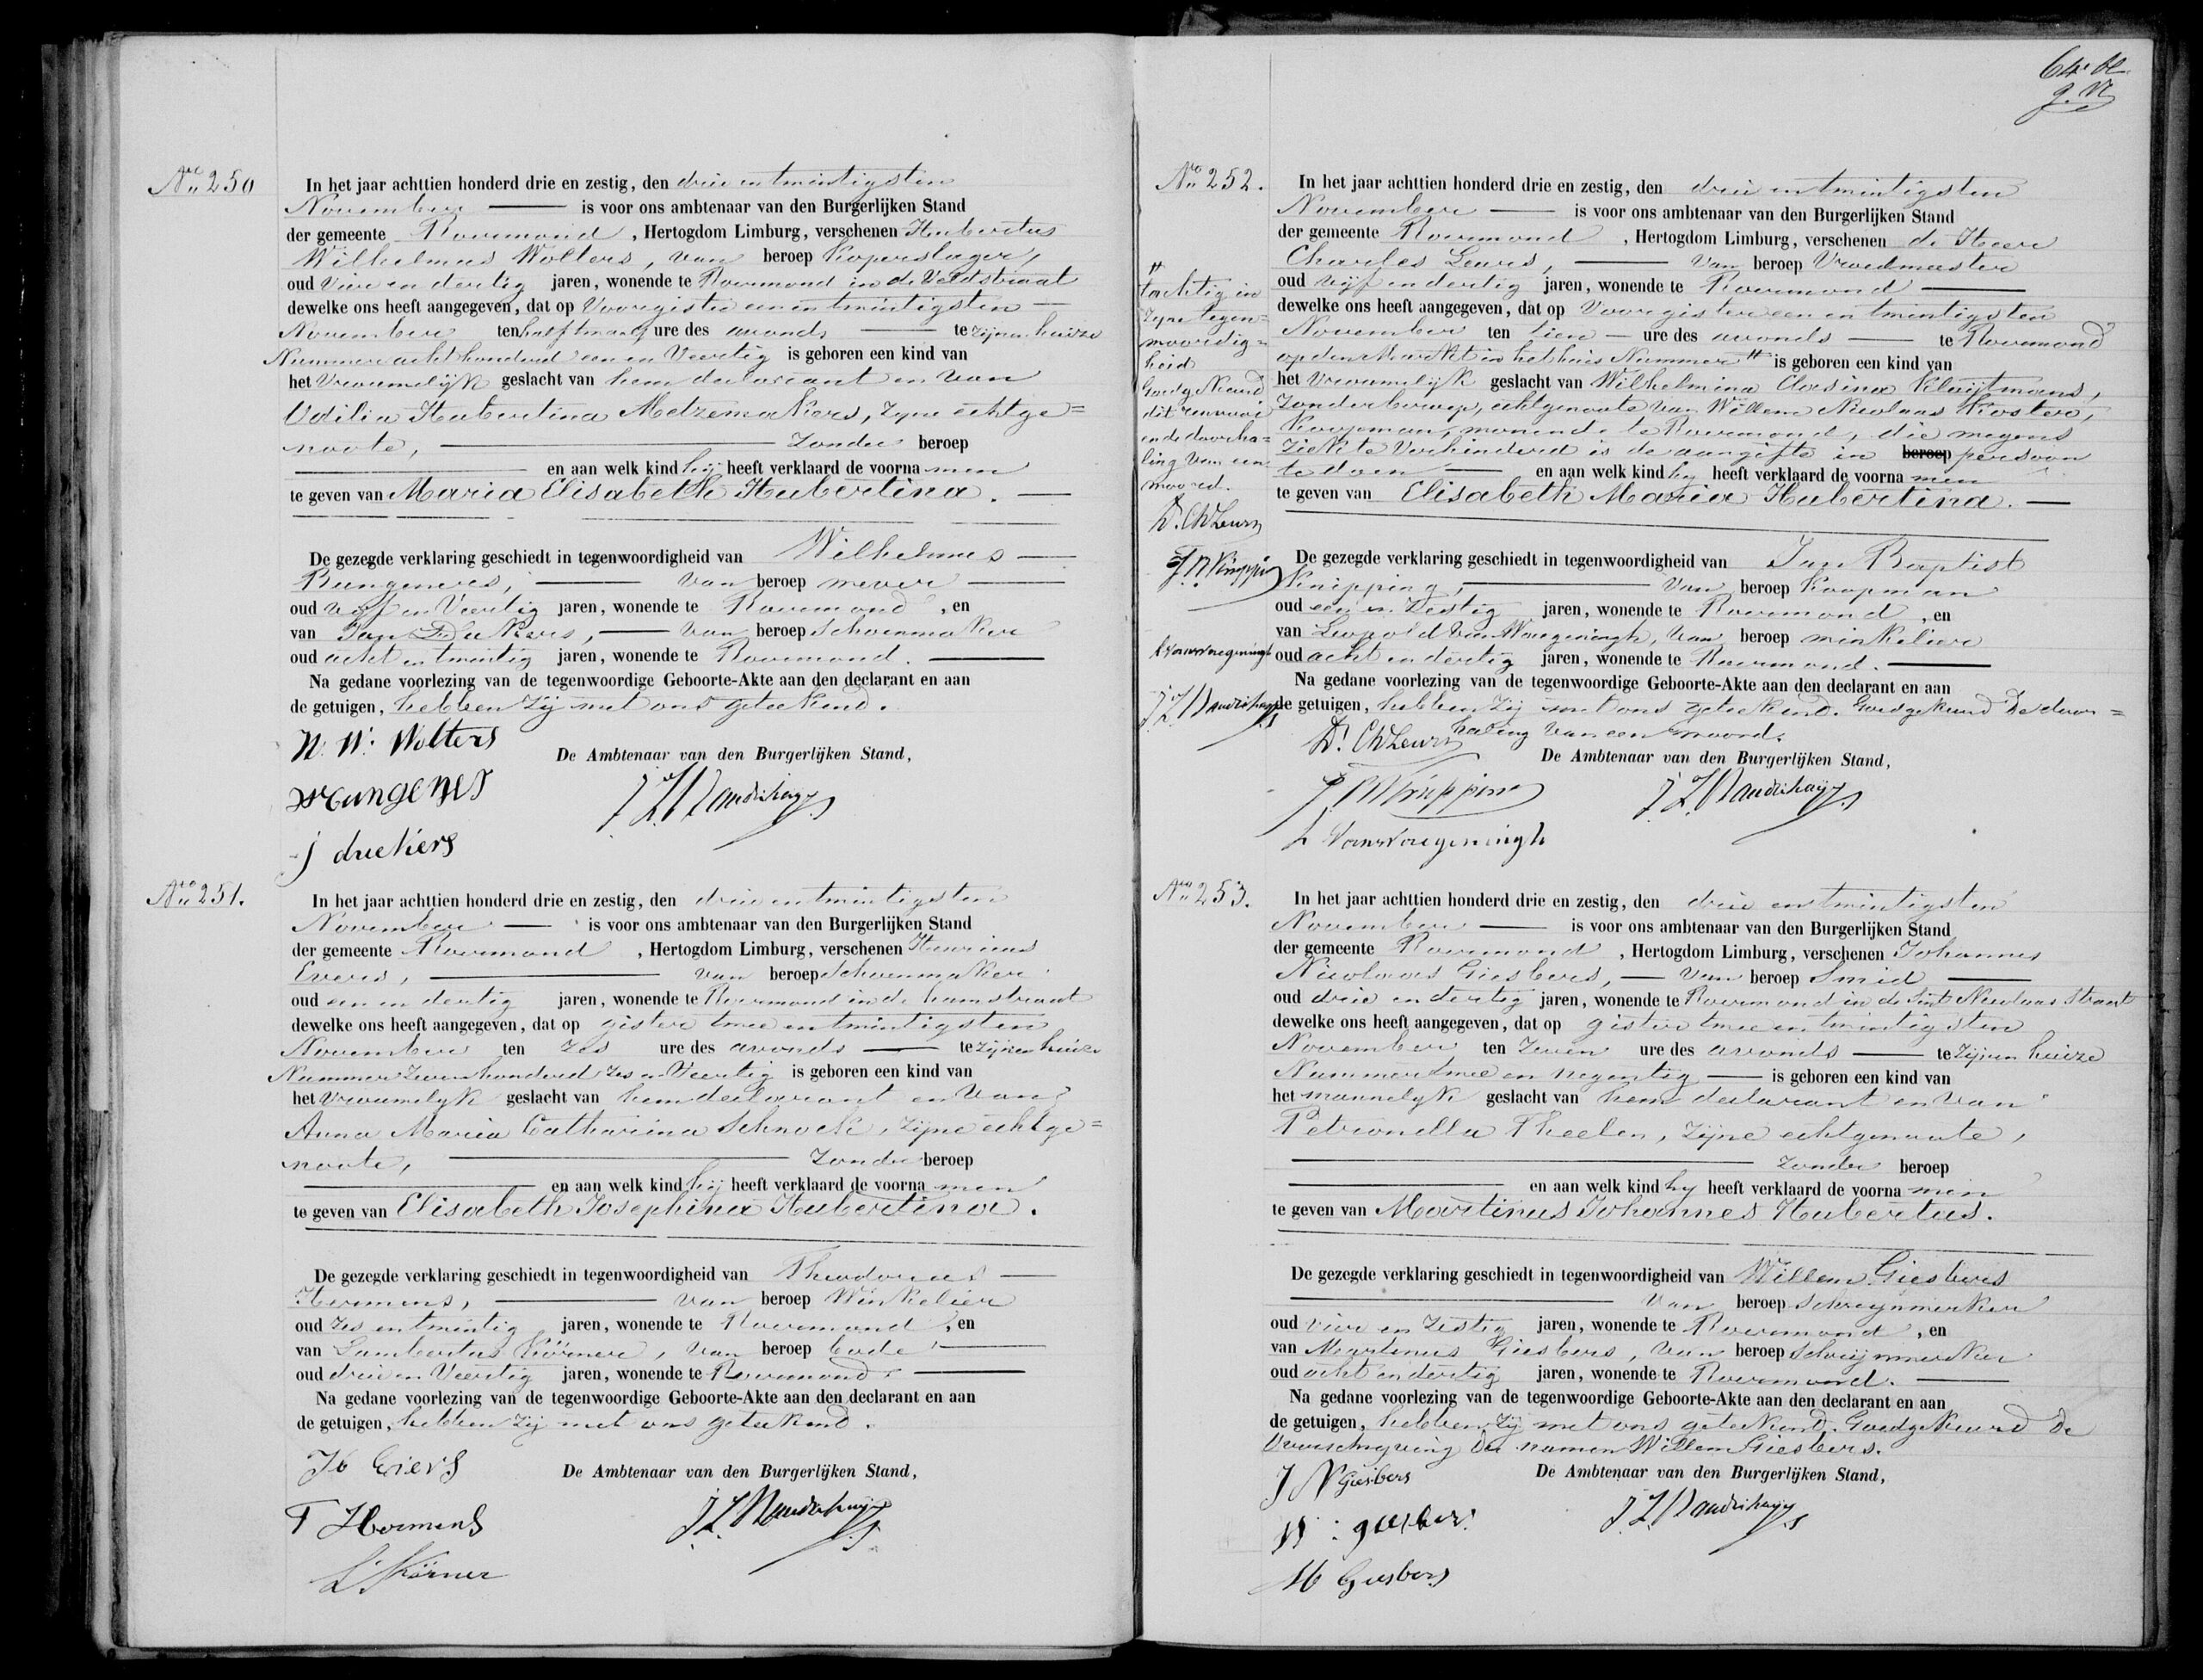 Nro 250
In het jaar achttien honderd drie en zestig, den drie en twintigsten
November is voor ons ambtenaar van den Burgerlijken Stand
der gemeente Roermond, Hertogdom Limburg, verschenen Hubertus
Wilhelmus Wolters, van beroep Koperslager,
oud vier en dertig jaren, wonende te Roermond in de Veldstraat
dewelke ons heeft aangegeven, dat op Voorgister een en twintigsten
November ten half twaalf ure des avonds te zijnen huize
Nummer acht honderd een en Veertig is geboren een kind van
het Vrouwelijk geslacht van hem declarant en van
Odilia Hubertina Metzemakers, zyne echtge=
noote, zonder beroep
en aan welk kind hij heeft verklaard de voornamen
te geven van Maria Elisabeth Hubertina.
De gezegde verklaring geschiedt in tegenwoordigheid van Wilhelmus
Rungenes, van beroep wever
oud vijf en Veertig jaren, wonende te Roermond, en
van Jan Duckers, van beroep Schoenmaker
oud acht en twintig jaren, wonende te Roermond.
Na gedane voorlezing van de tegenwoordige Geboorte-Akte aan den declarant en aan
de getuigen, hebben zij met ons geteekend.
H. W. Wolters
De Ambtenaar van den Burgerlijken Stand,
j duckers
Nro 251.
In het jaar achttien honderd drie en zestig, den drie en twintigsten
November is voor ons ambtenaar van den Burgerlijken Stand
der gemeente Roermond, Hertogdom Limburg, verschenen Henricus
Evers, van beroep Schoenmaker
oud een en dertig jaren, wonende te Roermond in de hamstraat
dewelke ons heeft aangegeven, dat op gister twee en twintigsten
November ten zes ure des avonds te zijnen huize
Nummer Zevenhonderd zes en Veertig is geboren een kind van
het Vrouwelyk geslacht van hem declarant en van
Anna Maria Catharina Schnock, zijne echtge=
noote, zonder beroep
en aan welk kind hij heeft verklaard de voornamen
te geven van Elisabeth Josephina Hubertina.
De gezegde verklaring geschiedt in tegenwoordigheid van Theodorus
Hermens, van beroep Winkelier
oud zes en twintig jaren, wonende te Roermond, en
van Lambertus Körner, van beroep bode
oud drie en Veertig jaren, wonende te Roermond.
Na gedane voorlezing van de tegenwoordige Geboorte-Akte aan den declarant en aan
de getuigen, hebben zij met ons geteekend.
De Ambtenaar van den Burgerlijken Stand,
T Hermens
L. Körner
64e bl
Nro 252.
In het jaar achttien honderd drie en zestig, den drie en twintigsten
November is voor ons ambtenaar van den Burgerlijken Stand
der gemeente Roermond, Hertogdom Limburg, verschenen de Heer
Charles Leurs, van beroep Vroedmeester
oud vijf en dertig jaren, wonende te Roermond
dewelke ons heeft aangegeven, dat op Voorgister een en twintigsten
November ten tien ure des avonds te Roermond
op den Markt in het huis Nummer # is geboren een kind van
het Vrouwelyk geslacht van Wilhelmina Clasina Kluijtmans,
Zonder beroep, echtgenoote van Willem Nicolaas Koster,
Koopman, wonende te Roermond, die wegens
ziekte Verhinderd is de aangifte in beroep persoon
te doen en aan welk kind hy heeft verklaard de voornamen
te geven van Elisabeth Maria Hubertina.
#
tachtig in
zyne tegen=
woordig=
heid
Goedgekeurd
dit renvooi
en de doorha=
ling van een
woord.
Dr. Ch Leurs
J. B Knipping
L vanwregeningh
De gezegde verklaring geschiedt in tegenwoordigheid van Jan Baptist
Knipping, van beroep Koopman
oud een en Zestig jaren, wonende te Roermond, en
van Leopold van Wregeningh, van beroep winkelier
oud acht en dertig jaren, wonende te Roermond.
Na gedane voorlezing van de tegenwoordige Geboorte-Akte aan den declarant en aan
de getuigen, hebben zij met ons geteekend. Goedgekeurd De door=
haling van een woord.
Dr. Ch Leurs
De Ambtenaar van den Burgerlijken Stand,
J B Knipping
L vanwregeningh
Nro 253.
In het jaar achttien honderd drie en zestig, den drie en twintigsten
November is voor ons ambtenaar van den Burgerlijken Stand
der gemeente Roermond, Hertogdom Limburg, verschenen Johannes
Nicolaas Giesbers, van beroep Smid
oud drie en dertig jaren, wonende te Roermond in de Sint Nicolaas Straat
dewelke ons heeft aangegeven, dat op gister twee en twintigsten
November ten Zeven ure des avonds te zijnen huize
Nummer twee en negentig is geboren een kind van
het mannelyk geslacht van hem declarant en van
Petronella Theelen, zijne echtgenoote,
zonder beroep
en aan welk kind hy heeft verklaard de voornamen
te geven van Martinus Johannes Hubertus.
De gezegde verklaring geschiedt in tegenwoordigheid van Willem Giesbers
van beroep Schrynwerker
oud vier en Zestig jaren, wonende te Roermond, en
van Martinus Giesbers, van beroep Schrijnwerker
oud acht en dertig jaren, wonende te Roermond.
Na gedane voorlezing van de tegenwoordige Geboorte-Akte aan den declarant en aan
de getuigen, hebben zij met ons geteekend. Goedgekeurd De
Overschryving der namen Willem Giesbers.
J N Giesbers
De Ambtenaar van den Burgerlijken Stand,
W: giesbers
M Giesbers